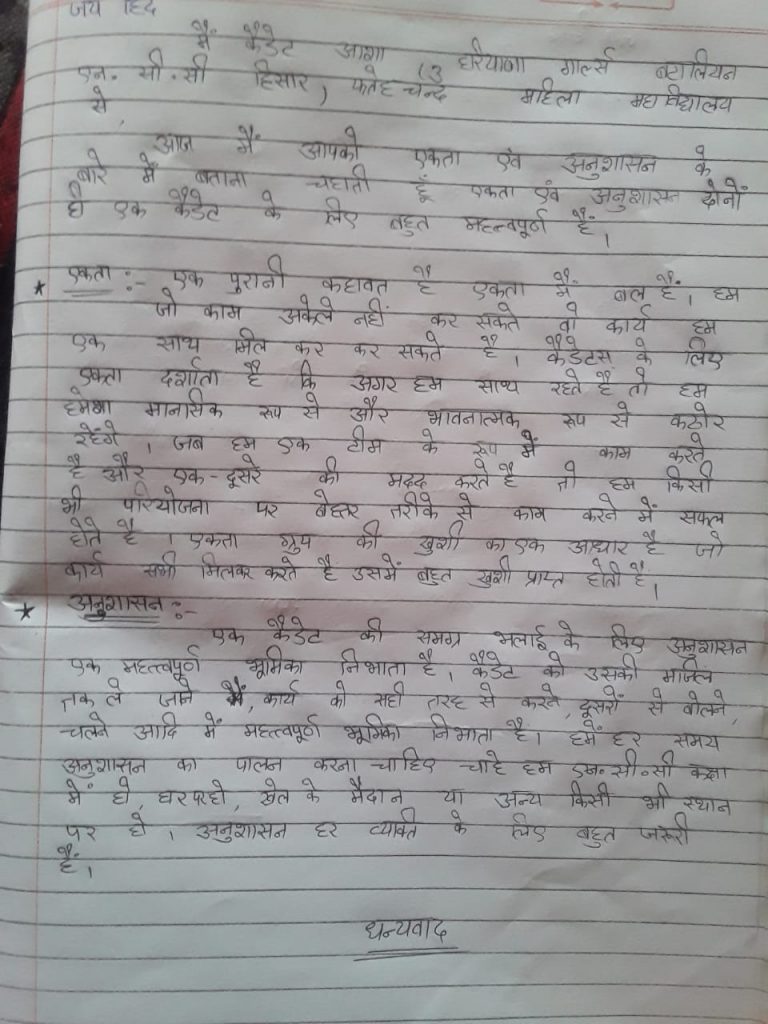 जय हिंद
मैं कैडेट आशा (3 हरियाणा गार्ल्स बटालियन
एन. सी. सी हिसार) फतेह चन्द महिला महाविद्यालय
से,
आज मैं आपको एकता एवं अनुशासन के
बारे में बताना चहाती हूँ एकता एवं अनुशासन दोनों
ही एक कैडेट के लिए बहुत महत्वपूर्ण हैं।
* एकता :- एक पुरानी कहावत है एकता में बल है। हम
जो काम अकेले नहीं कर सकते वो कार्य हम
एक साथ मिल कर कर सकते है। कैडेटस के लिए
एकता दर्शाता है कि अगर हम साथ रहते है तो हम
हमेशा मानसिक रूप से और भावनात्मक रूप से कठोर
रहेंगे। जब हम एक टीम के रूप में काम करते
है और एक-दूसरे की मदद करते है तो हम किसी
भी परियोजना पर बेहतर तरीके से काम करने में सफल
होते है। एकता ग्रुप की खुशी का एक आधार है जो
कार्य सभी मिलकर करते है उसमें बहुत खुशी प्राप्त होती है।
* अनुशासन :-
एक कैडेट की समग्र भलाई के लिए अनुशासन
एक महत्वपूर्ण भूमिका निभाता है। कैडेट को उसकी मंजिल
तक ले जाने में, कार्य को सही तरह से करने, दूसरों से बोलने,
चलने आदि में महत्वपूर्ण भूमिका निभाता है। हमें हर समय
अनुशासन का पालन करना चाहिए चाहे हम एन. सी. सी कक्षा
में हो, घर पर हो, खेल के मैदान या अन्य किसी भी स्थान
पर हो। अनुशासन हर व्यक्ति के लिए बहुत जरूरी
है।
धन्यवाद